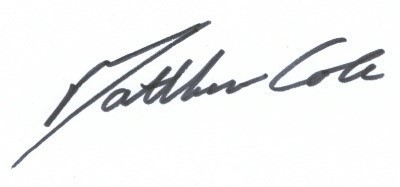 Matthew Cole